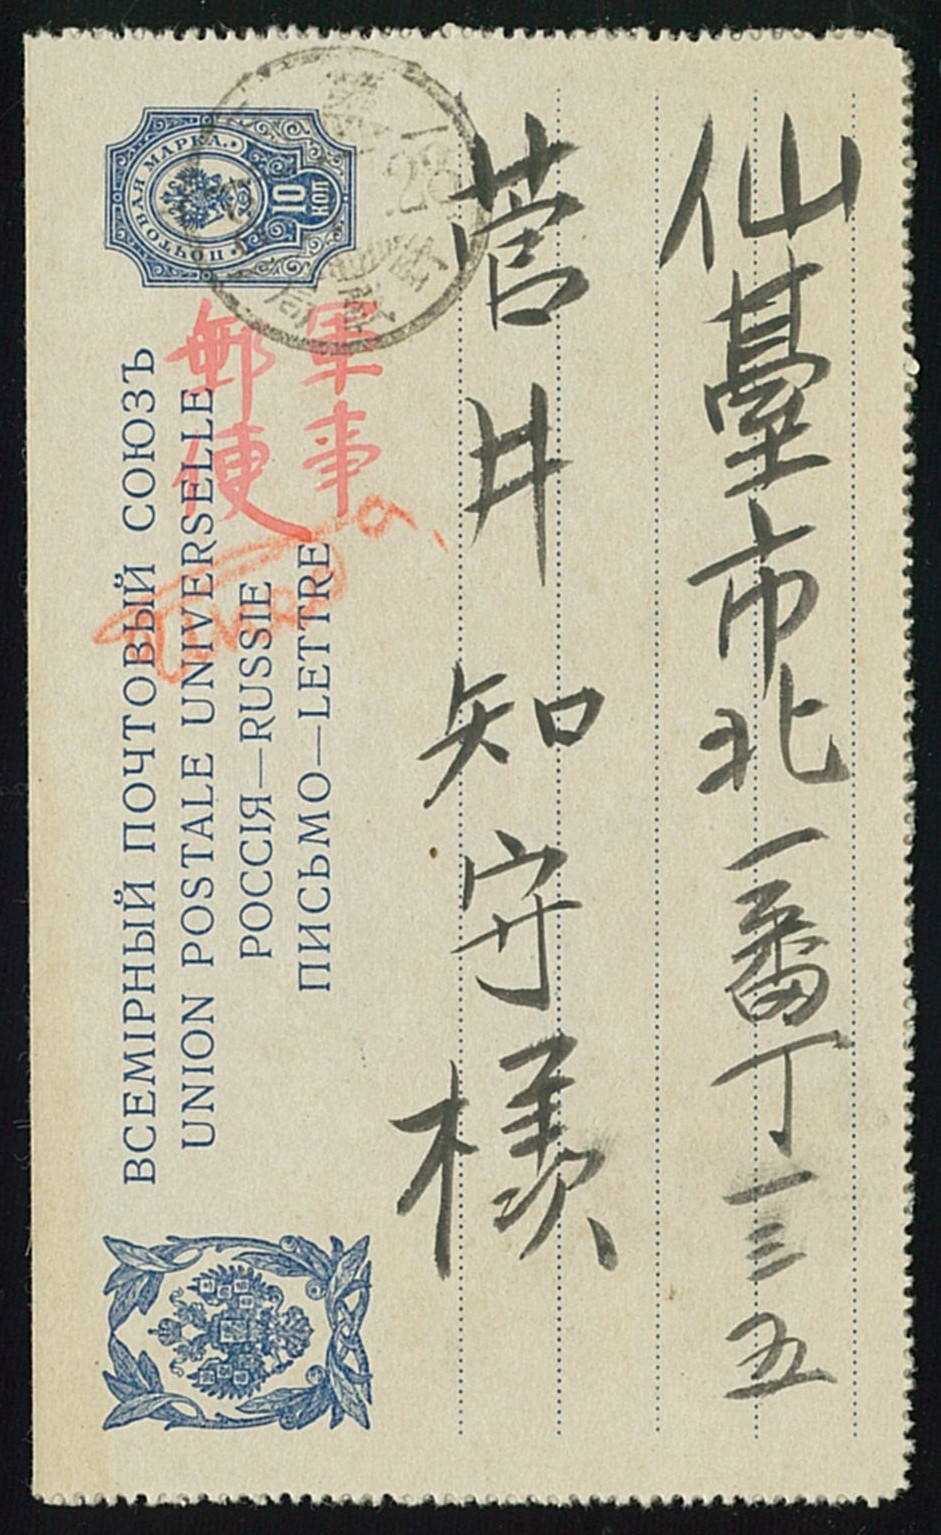 仙臺市北一番丁一三五
菅井知守様
軍事
郵便
ВСЕМІРНЫЙ ПОЧТОВЫЙ СОЮЗЪ
UNION POSTALE UNIVERSELLE
РОССІЯ—RUSSIE
ПИСЬМО—LETTRE
ПОЧТОВАЯ МАРКА.
10 КОП
28